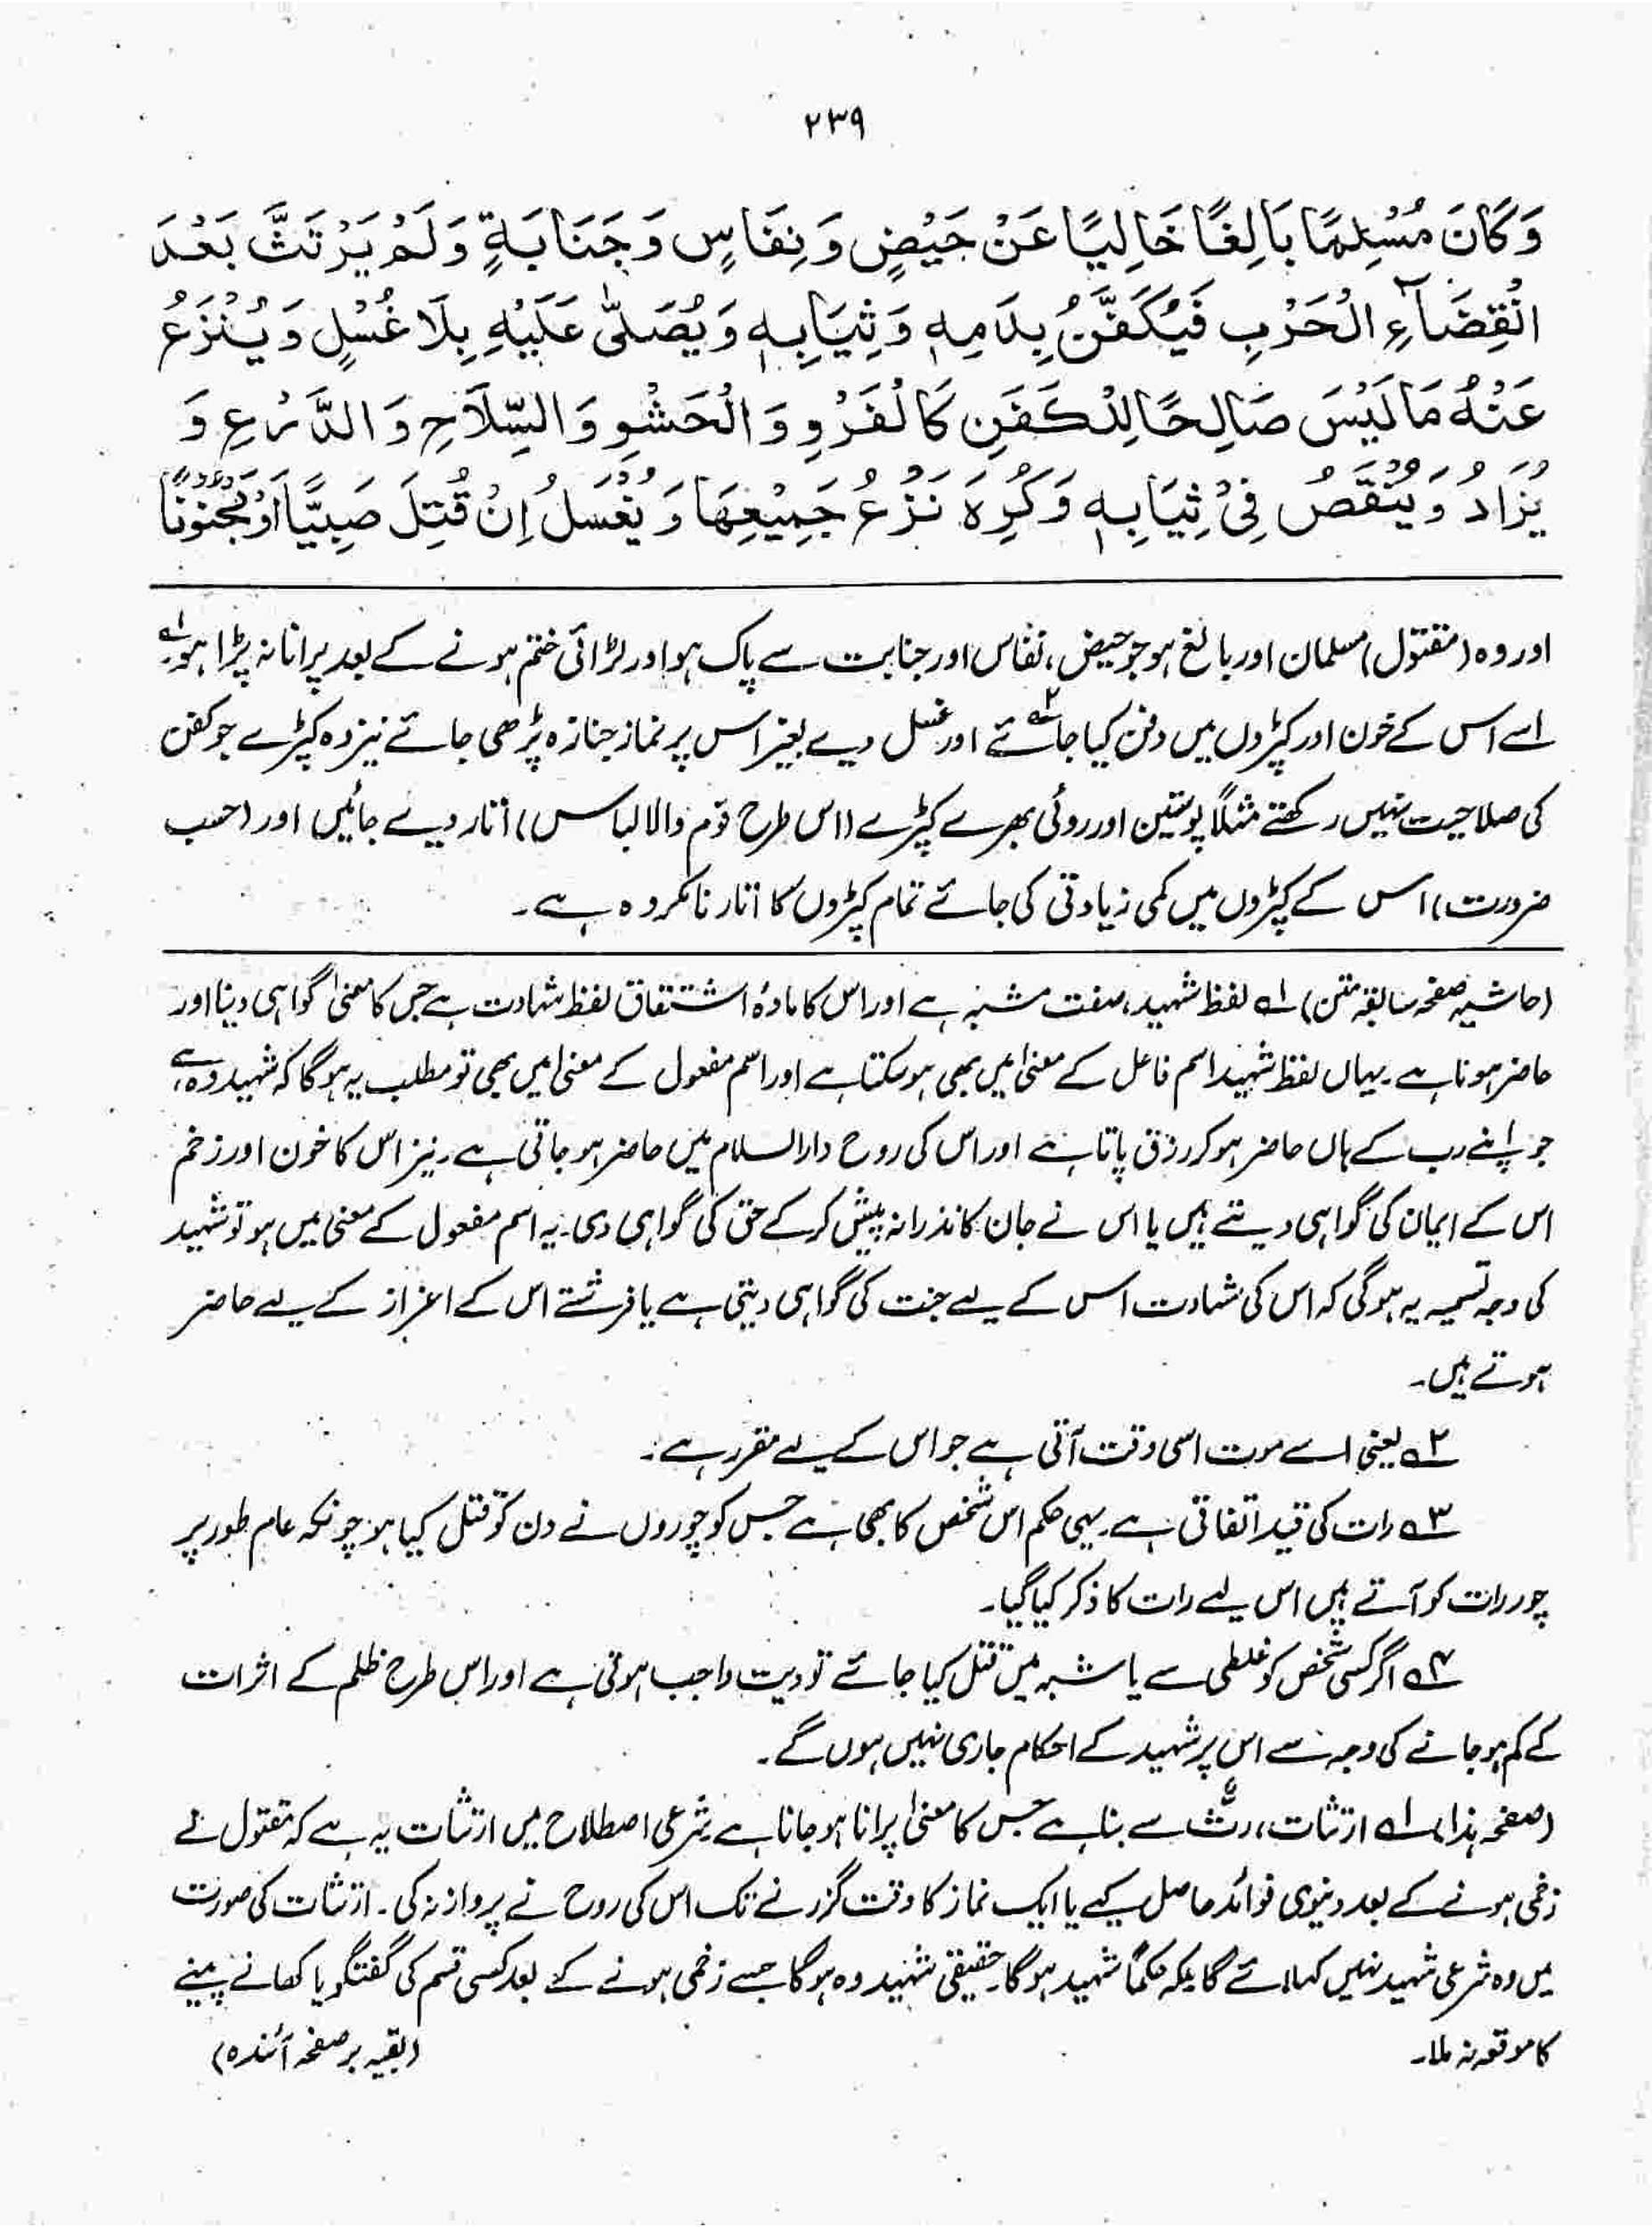 ۲۳۹
وَكَانَ مُسْلِمًا بَالِغًا خَالِيًا عَنْ حَيْضٍ وَنِفَاسٍ وَجَنَابَةٍ وَلَمْ يَرْتَثَّ بَعْدَ
انْقِضَآءِ الْحَرْبِ فَيُكَفَّنُ بِدَمِهٖ وَثِيَابِهٖ وَيُصَلّٰى عَلَيْهِ بِلَا غُسْلٍ وَيُنْزَعُ
عَنْهُ مَا لَيْسَ صَالِحًا لِلْكَفَنِ كَالْفَرْوِ وَالْحَشْوِ وَالسِّلَاحِ وَالدِّرْعِ وَ
يُزَادُ وَيُنْقَصُ فِیْ ثِيَابِهٖ وَكُرِهَ نَزْعُ جَمِيْعِهَا وَيُغْسَلُ اِنْ قُتِلَ صَبِيًّا اَوْ مَجْنُوْنًا
اور وہ (مقتول) مسلمان اور بالغ ہو جو حیض، نفاس اور جنابت سے پاک ہو اور لڑائی ختم ہونے کے بعد پرانا نہ پڑا ہو۔ ۱ے
اسے اس کے خون اور کپڑوں میں دفن کیا جائے ۲ے اور غسل دیے بغیر اس پر نماز جنازہ پڑھی جائے نیز وہ کپڑے جو کفن
کی صلاحیت نہیں رکھتے مثلاً پوستین اور روئی بھرے کپڑے (اس طرح توم والا لباس) اتار دیے جائیں اور (حسب
ضرورت) اس کے کپڑوں میں کمی زیادتی کی جائے تمام کپڑوں کا اتارنا مکروہ ہے۔
(حاشیہ صفحہ سابقہ متن) ۱ے لفظ شہید، صفت مشبہ ہے اور اس کا مادۂ اشتقاق لفظ شہادت ہے جس کا معنیٰ گواہی دینا اور
حاضر ہونا ہے۔ یہاں لفظ شہید اسم فاعل کے معنیٰ میں بھی ہو سکتا ہے اور اسم مفعول کے معنیٰ میں بھی تو مطلب یہ ہوگا کہ شہید وہ ہے،
جو اپنے رب کے ہاں حاضر ہو کر رزق پاتا ہے اور اس کی روح دارالسلام میں حاضر ہو جاتی ہے۔ نیز اس کا خون اور زخم
اس کے ایمان کی گواہی دیتے ہیں یا اس نے جان کا نذرانہ پیش کر کے حق کی گواہی دی۔ یہ اسم مفعول کے معنیٰ میں ہو تو شہید
کی وجہ تسمیہ یہ ہوگی کہ اس کی شہادت اس کے لیے جنت کی گواہی دیتی ہے یا فرشتے اس کے اعزاز کے لیے حاضر
ہوتے ہیں۔
۲ے یعنی اسے موت اسی وقت آتی ہے جو اس کے لیے مقرر ہے۔
۳ے رات کی قید اتفاقی ہے۔ یہی حکم اس شخص کا بھی ہے جس کو چوروں نے دن کو قتل کیا ہو چونکہ عام طور پر
چور رات کو آتے ہیں اس لیے رات کا ذکر کیا گیا۔
۴ے اگر کسی شخص کو غلطی سے یا شبہ میں قتل کیا جائے تو دیت واجب ہوتی ہے اور اس طرح ظلم کے اثرات
کے کم ہو جانے کی وجہ سے اس پر شہید کے احکام جاری نہیں ہوں گے۔
(صفحہ ہذا) ۱ے ارتثاث، رثٌّ سے بنا ہے جس کا معنیٰ پرانا ہو جانا ہے شرعی اصطلاح میں ارتثاث یہ ہے کہ مقتول نے
زخمی ہونے کے بعد دنیوی فوائد حاصل کیے یا ایک نماز کا وقت گزرنے تک اس کی روح نے پرواز نہ کی۔ ارتثاث کی صورت
میں وہ شرعی شہید نہیں کہلائے گا بلکہ حکماً شہید ہوگا۔ حقیقی شہید وہ ہوگا جسے زخمی ہونے کے بعد کسی قسم کی گفتگو یا کھانے پینے
کا موقعہ نہ ملا۔ (بقیہ بر صفحہ آئندہ)